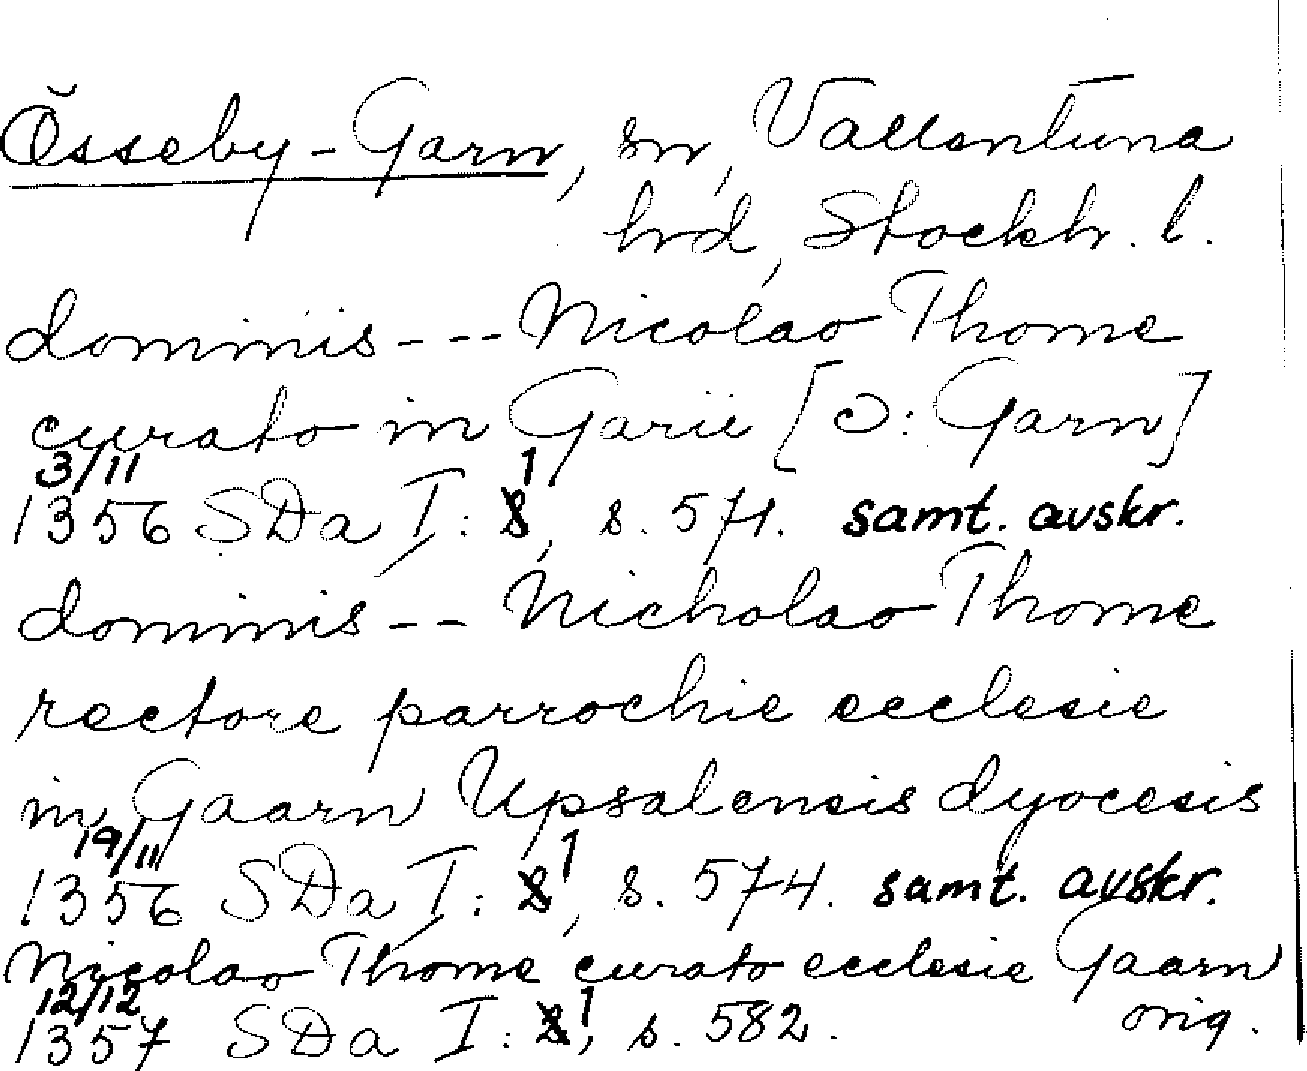 Össeby-Garn, sn, Vallentuna
hrd, Stockh. l.
dominis --- Nicolao Thome
curato in Garii [ɔ: Garn]
3/11 1
1356 SDa I: s, s. 571. samt. avskr.
dominis -- Nicholao Thome
rectore parrochie ecclesie
in Gaarn Upsalensis dyocesis
19/11 1
1356 SDa I: s, s. 574. samt. avskr.
Nicolao Thome curato ecclesie Gaarn
12/12 1 orig.
1357 SDa I: s, s. 582.